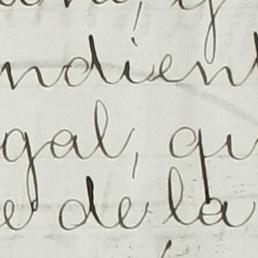 ndient
gal, qu
e de la